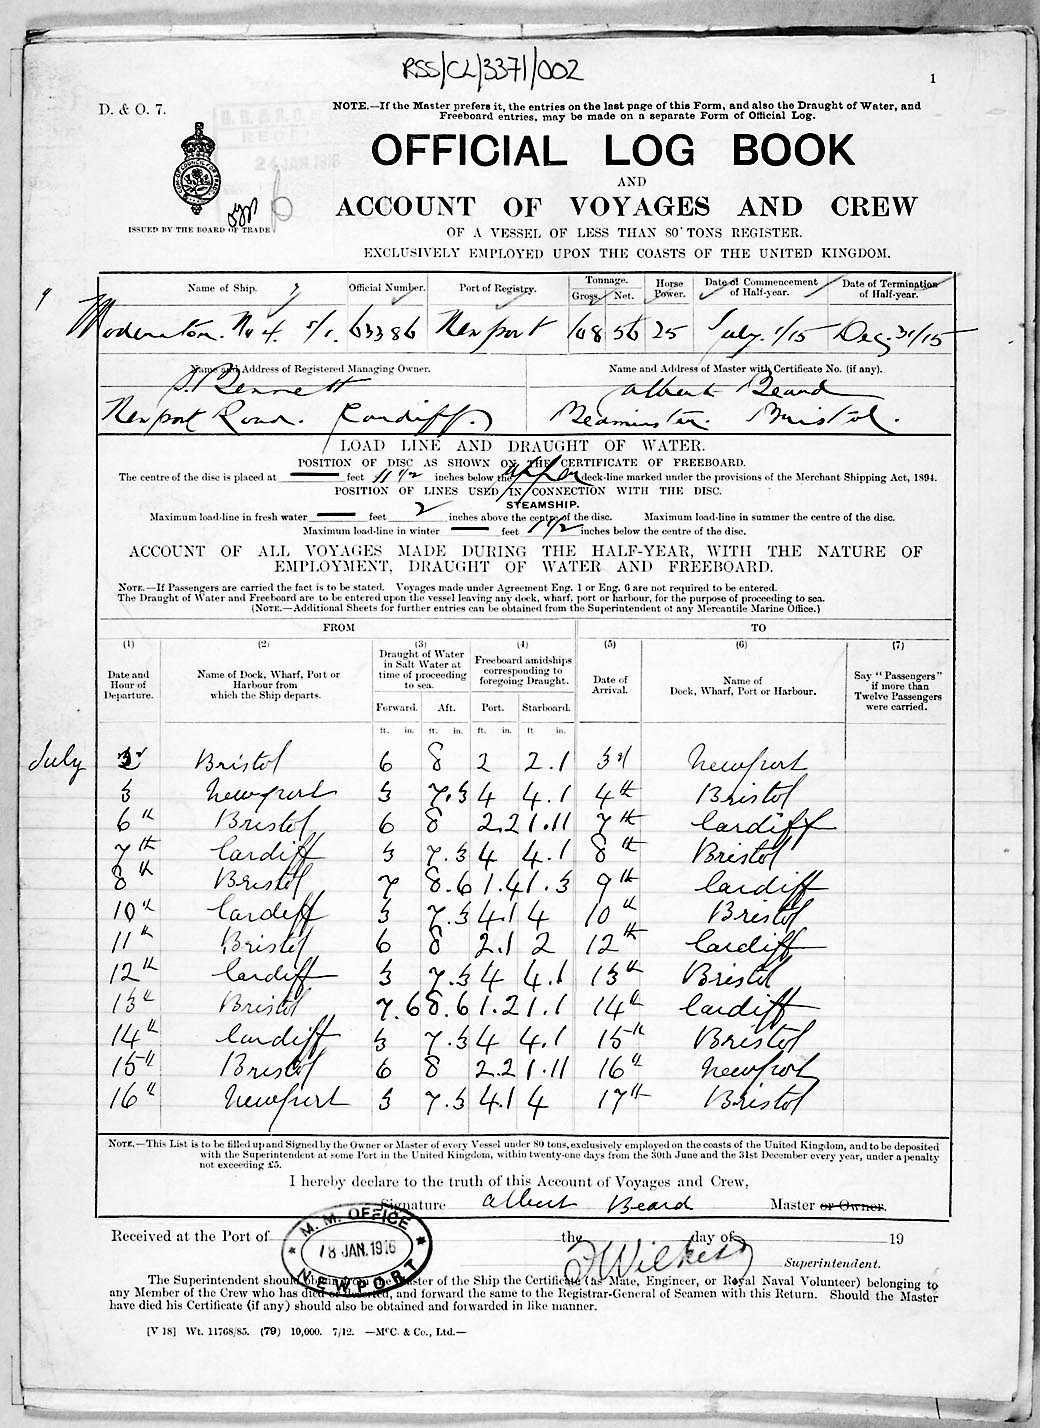 RSS/CL/3371/002
1
D. & O. 7.
NOTE.—If the Master prefers it, the entries on the last page of this Form, and also the Draught of Water, and
Freeboard entries, may be made on a separate Form of Official Log.
OFFICIAL LOG BOOK
AND
ACCOUNT OF VOYAGES AND CREW
ISSUED BY THE BOARD OF TRADE
OF A VESSEL OF LESS THAN 80 TONS REGISTER.
EXCLUSIVELY EMPLOYED UPON THE COASTS OF THE UNITED KINGDOM.
Name of Ship. Official Number. Port of Registry. Tonnage. Horse Power. Date of Commencement of Half-year. Date of Termination of Half-year.
Gross. Net.
Moderator No 4 S/S. 63386 Newport 108 56 25 July 1/15 Dec. 31/15
Name and Address of Registered Managing Owner. Name and Address of Master with Certificate No. (if any).
S. Bennett Albert Beard
Newport Road. Cardiff. Bedminster. Bristol.
LOAD LINE AND DRAUGHT OF WATER.
POSITION OF DISC AS SHOWN ON THE CERTIFICATE OF FREEBOARD.
The centre of the disc is placed at — feet 11 1/2 inches below the upper deck-line marked under the provisions of the Merchant Shipping Act, 1894.
POSITION OF LINES USED IN CONNECTION WITH THE DISC.
STEAMSHIP.
Maximum load-line in fresh water — feet 2 inches above the centre of the disc. Maximum load-line in summer the centre of the disc.
Maximum load-line in winter — feet 1 1/2 inches below the centre of the disc.
ACCOUNT OF ALL VOYAGES MADE DURING THE HALF-YEAR, WITH THE NATURE OF
EMPLOYMENT, DRAUGHT OF WATER AND FREEBOARD.
NOTE.—If Passengers are carried the fact is to be stated. Voyages made under Agreement Eng. 1 or Eng. 6 are not required to be entered.
The Draught of Water and Freeboard are to be entered upon the vessel leaving any dock, wharf, port or harbour, for the purpose of proceeding to sea.
(NOTE.—Additional Sheets for further entries can be obtained from the Superintendent of any Mercantile Marine Office.)
FROM TO
(1) (2) (3) (4) (5) (6) (7)
Date and Hour of Departure. Name of Dock, Wharf, Port or Harbour from which the Ship departs. Draught of Water in Salt Water at time of proceeding to sea. Freeboard amidships corresponding to foregoing Draught. Date of Arrival. Name of Dock, Wharf, Port or Harbour. Say "Passengers" if more than Twelve Passengers were carried.
Forward. Aft. Port. Starboard.
ft. in. ft. in. ft. in. ft in.
July 2nd Bristol 6 8 2 2.1 3rd Newport
3 Newport 3 7.3 4 4.1 4th Bristol
6th Bristol 6 8 2.2 1.11 7th Cardiff
7th Cardiff 3 7.3 4 4.1 8th Bristol
8th Bristol 7 8.6 1.4 1.3 9th Cardiff
10th Cardiff 3 7.3 4.1 4 10th Bristol
11th Bristol 6 8 2.1 2 12th Cardiff
12th Cardiff 3 7.3 4 4.1 13th Bristol
13th Bristol 7.6 8.6 1.2 1.1 14th Cardiff
14th Cardiff 3 7.3 4 4.1 15th Bristol
15th Bristol 6 8 2.2 1.11 16th Newport
16th Newport 3 7.3 4.1 4 17th Bristol
NOTE.—This List is to be filled up and Signed by the Owner or Master of every Vessel under 80 tons, exclusively employed on the coasts of the United Kingdom, and to be deposited
with the Superintendent at some Port in the United Kingdom, within twenty-one days from the 30th June and the 31st December every year, under a penalty
not exceeding £5.
I hereby declare to the truth of this Account of Voyages and Crew,
Signature Albert Beard Master or Owner.
Received at the Port of the day of 19
M. M. OFFICE
18 JAN. 1916
NEWPORT
Superintendent.
The Superintendent should obtain from the Master of the Ship the Certificate (as Mate, Engineer, or Royal Naval Volunteer) belonging to
any Member of the Crew who has died or deserted, and forward the same to the Registrar-General of Seamen with this Return. Should the Master
have died his Certificate (if any) should also be obtained and forwarded in like manner.
[V 18] Wt. 11768/85. (79) 10,000. 7/12. —McC. & Co., Ltd.—